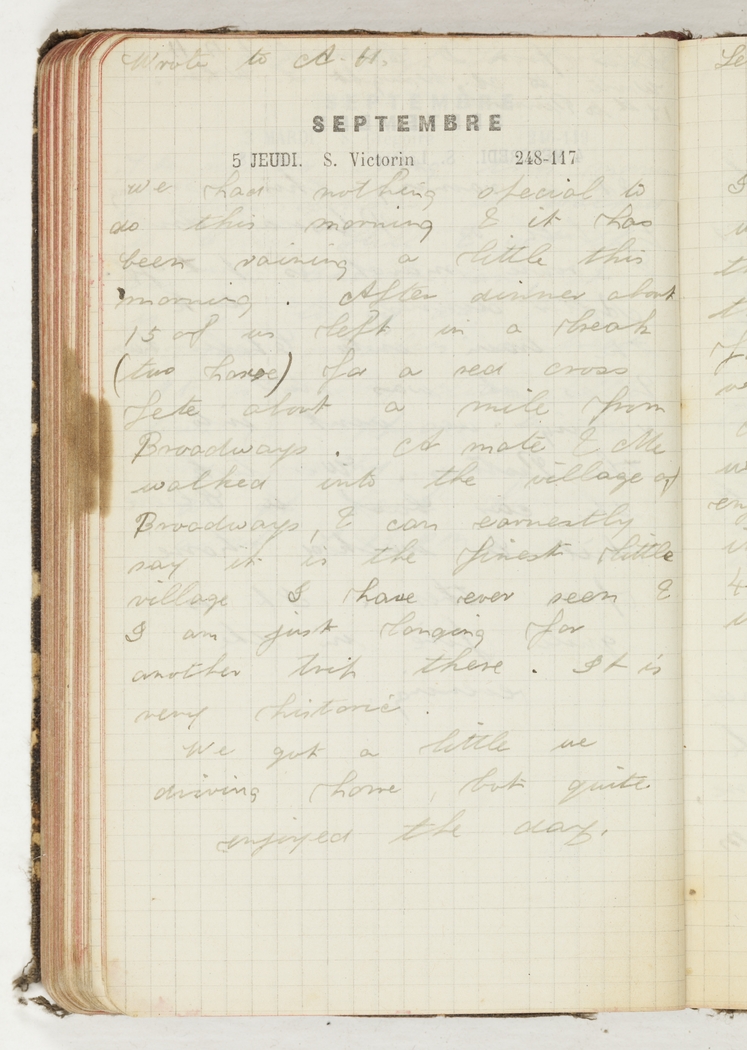 Wrote to A. H.
SEPTEMBRE
5 JEUDI. S. Victorin 248-117
We had nothing special to
do this morning & it has
been raining a little this
morning. After dinner about
15 of us left in a break
(two horse) for a red cross
fete about a mile from
Broadways. A mate & Me
walked into the village of
Broadways, & can earnestly
say it is the finest little
village I have ever seen &
I am just longing for
another trip there. It is
very historic.
We got a little
driving home, but quite
enjoyed the day.